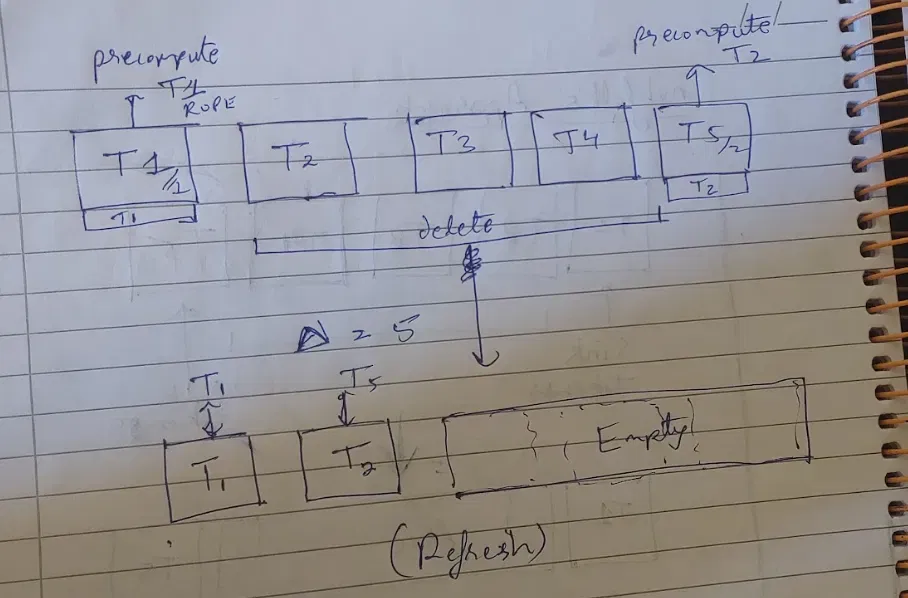 precompute
T1
ROPE
precompute
T2
T1/1
T2
T3
T4
T5/2
T1
T2
delete
N = 5
T1
T5
T1
T2
Empty
(Refresh)